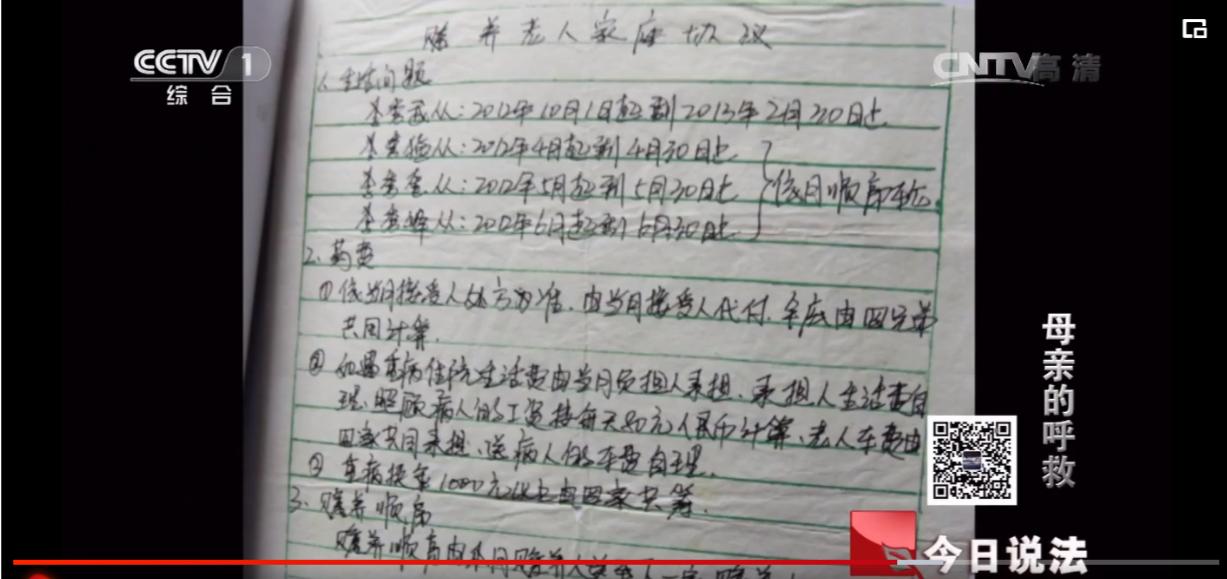 CCTV 1
综合
CNTV高清
赡养老人家庭协议
1.生活问题
李 从:2012年10月1日起到2013年2月30日止
李 从:2012年4月起到4月30日止
李 从:2012年5月起到5月30日止
李 峰从:2012年6月起到6月30日止
依月顺序轮
2.药费
①依当月接受人处方为准.由当月接受人代付.年底由四兄弟
共同计算.
②如遇重病住院生活费由当月负担人承担.承担人生活费自
理.照顾病人的工资按每天80元人民币计算、老人车费由
四家共同承担、送病人的车费自理.
③重病按每1000元以上由四家共筹.
3.赡养顺序
赡养顺序由
母亲的呼救
今日说法